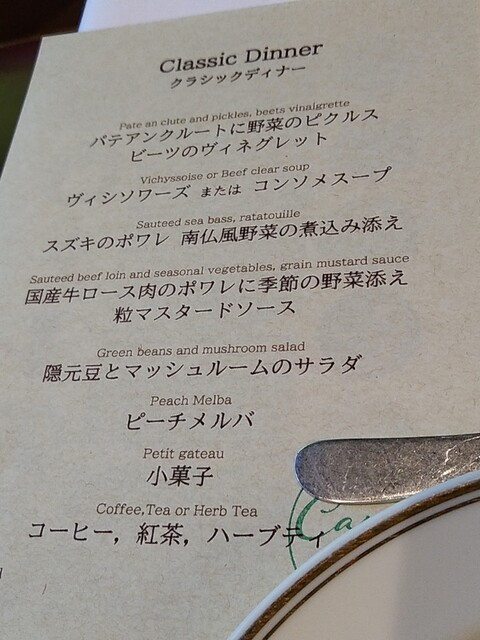 Classic Dinner
クラシックディナー
Pate an clute and pickles, beets vinaigrette
パテアンクルートに野菜のピクルス
ビーツのヴィネグレット
Vichyssoise or Beef clear soup
ヴィシソワーズ または コンソメスープ
Sauteed sea bass, ratatouille
スズキのポワレ 南仏風野菜の煮込み添え
Sauteed beef loin and seasonal vegetables, grain mustard sauce
国産牛ロース肉のポワレに季節の野菜添え
粒マスタードソース
Green beans and mushroom salad
隠元豆とマッシュルームのサラダ
Peach Melba
ピーチメルバ
Petit gateau
小菓子
Coffee,Tea or Herb Tea
コーヒー，紅茶，ハーブティ